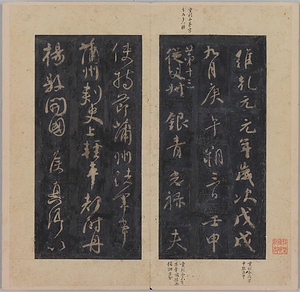 維乾元元年歲次戊戌
九月庚午朔三日壬申
第十三
從父 銀青光祿夫
使持節蒲州諸軍事
蒲州刺史上輕車都尉丹
楊縣開國侯真卿以